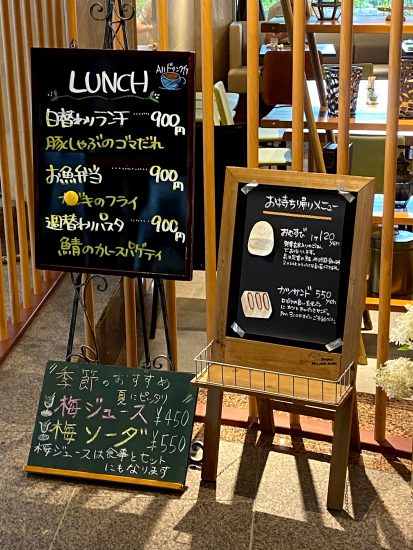 LUNCH
Allドリンク付
日替わりランチ 900円
豚しゃぶのゴマだれ
お魚弁当 900円
キのフライ
週替わりパスタ 900円
鯖のカレースパゲティ
お持ち帰りメニュー
おむすび 1ケ 120 yen
カツサンド 550 yen
季節のおすすめ
夏にピッタリ
梅ジュース ¥450
梅ソーダ ¥550
梅ジュースは食事とセット
にもなります